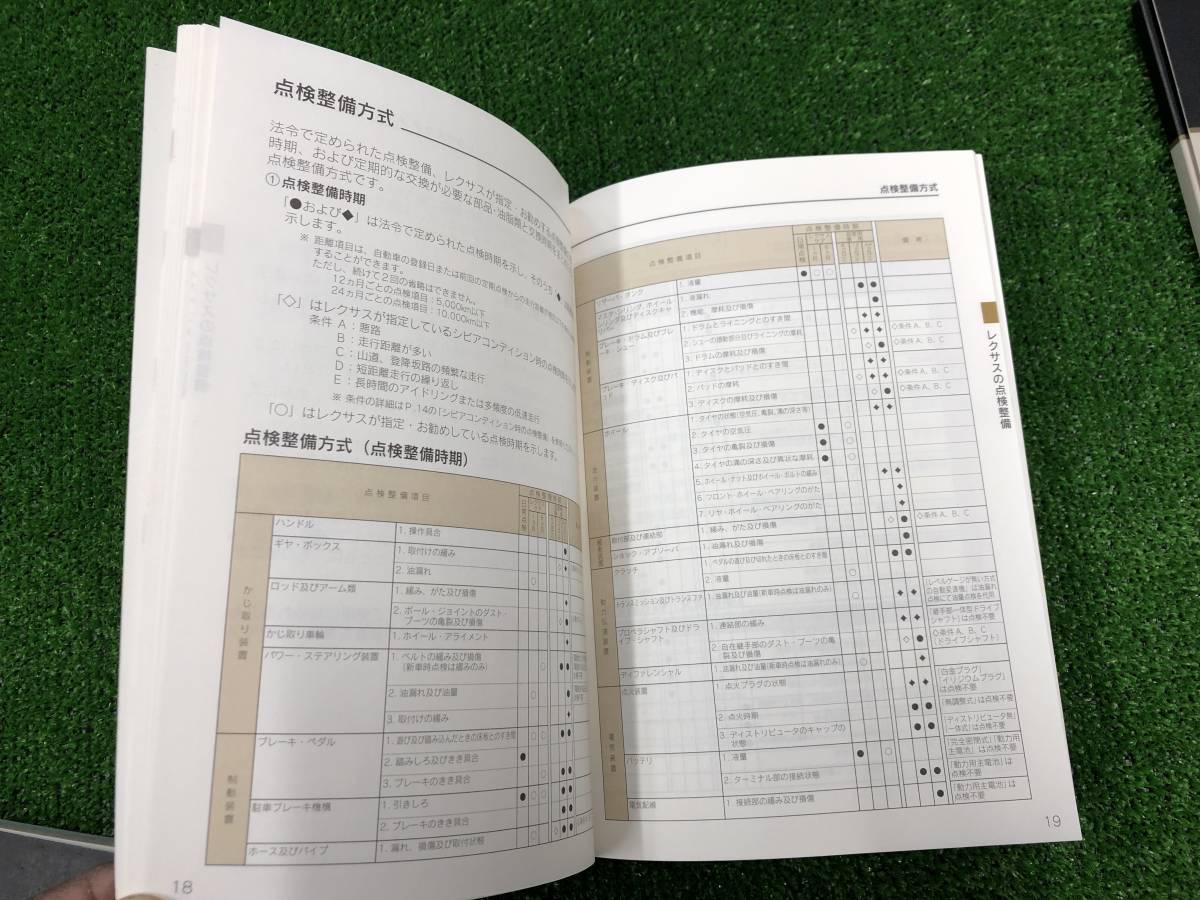 点検整備方式
法令で定められた点検整備、レクサスが指定・お勧めする点検整備
時期、および定期的な交換が必要な部品・油脂類と交換時期をまとめた
点検整備方式です。
①点検整備時期
「●および◆」は法令で定められた点検時期を示し、そのうち、◆
示します。
※ 距離項目は、自動車の登録日または前回の定期点検からの走行距離が
することができます。
ただし、続けて2回の省略はできません。
12ヵ月ごとの点検項目：5,000km以下
24ヵ月ごとの点検項目：10,000km以下
「◇」はレクサスが指定しているシビアコンディション時の点検時期を
条件 A：悪路
B：走行距離が多い
C：山道、登降坂路の頻繁な走行
D：短距離走行の繰り返し
E：長時間のアイドリングまたは多頻度の低速走行
※ 条件の詳細はP.14の「シビアコンディション時の点検整備」を
「○」はレクサスが指定・お勧めしている点検時期を示します。
点検整備方式（点検整備時期）
点検整備項目
点検整備時期
日常点検
かじ取り装置
ハンドル
1. 操作具合
ギヤ・ボックス
1. 取付けの緩み
2. 油漏れ
ロッド及びアーム類
1. 緩み、がた及び損傷
2. ボール・ジョイントのダスト・
ブーツの亀裂及び損傷
かじ取り車輪
1. ホイール・アライメント
パワー・ステアリング装置
1. ベルトの緩み及び損傷
(新車時点検は緩みのみ)
2. 油漏れ及び油量
3. 取付けの緩み
制動装置
ブレーキ・ペダル
1. 遊び及び踏み込んだときの床板とのすき間
2. 踏みしろ及びきき具合
3. ブレーキのきき具合
駐車ブレーキ機構
1. 引きしろ
2. ブレーキのきき具合
ホース及びパイプ
1. 漏れ、損傷及び取付状態
18
点検整備方式
点検整備項目
点検整備時期
備考
日常点検
制動装置
リザーバ・タンク
1. 液量
マスタ・シリンダ、ホイール・
シリンダ及びディスク・キャ
リパ
1. 液漏れ
2. 機能、摩耗及び損傷
ブレーキ・ドラム及びブレ
ーキ・シュー
1. ドラムとライニングとのすき間
◇条件A、B、C
2. シューの摺動部分及びライニングの摩耗
◇条件A、B、C
3. ドラムの摩耗及び損傷
ブレーキ・ディスク及びパ
ッド
1. ディスクとパッドとのすき間
◇条件A、B、C
2. パッドの摩耗
◇条件A、B、C
3. ディスクの摩耗及び損傷
走行装置
ホイール
1. タイヤの状態(空気圧、亀裂、溝の深さ等)
2. タイヤの空気圧
3. タイヤの亀裂及び損傷
4. タイヤの溝の深さ及び異状な摩耗
5. ホイール・ナット及びホイール・ボルトの緩み
6. フロント・ホイール・ベアリングのがた
7. リヤ・ホイール・ベアリングのがた
緩衝装置
取付部及び連結部
1. 緩み、がた及び損傷
◇条件A、B、C
ショック・アブソーバ
1. 油漏れ及び損傷
動力伝達装置
クラッチ
1. ペダルの遊び及び切れたときの床板とのすき間
2. 液量
トランスミッション及びトランスファ
1. 油漏れ及び油量(新車時点検は油漏れのみ)
「レベルゲージが無い方式
の自動変速機」は油漏れ
点検にて油量点検を代用
プロペラシャフト及びドラ
イブ・シャフト
1. 連結部の緩み
「継手部一体型ドライブ
シャフト」は点検不要
2. 自在継手部のダスト・ブーツの亀
裂及び損傷
◇条件A、B、C
(ドライブシャフト)
ディファレンシャル
1. 油漏れ及び油量(新車時点検は油漏れのみ)
電気装置
点火装置
1. 点火プラグの状態
「白金プラグ」
「イリジウムプラグ」
は点検不要
2. 点火時期
「無調整式」は点検不要
3. ディストリビュータのキャップの
状態
「ディストリビュータ無/
一体式」は点検不要
バッテリ
1. 液量
「完全密閉式」「動力用
主電池」は点検不要
2. ターミナル部の接続状態
「動力用主電池」は
点検不要
電気配線
1. 接続部の緩み及び損傷
「動力用主電池」は
点検不要
レクサスの点検整備
19